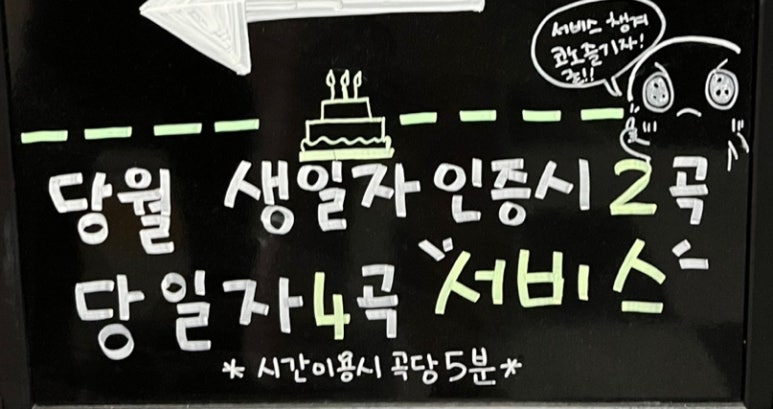 서비스 챙겨
코노즐기자!
당월 생일자 인증시 2곡
당일자 4곡 "서비스"
*시간이용시 곡당 5분*